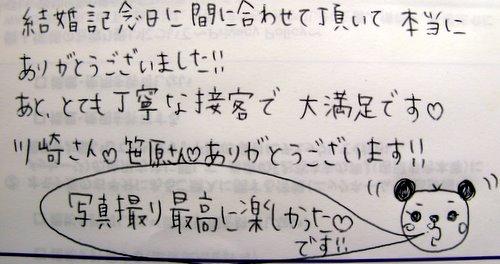 結婚記念日に間に合わせて頂いて 本当に
ありがとうございました!!
あと、とても丁寧な接客で 大満足です♡
川崎さん♡笹原さん♡ありがとうございます!!
写真撮り最高に楽しかった♡
です!!